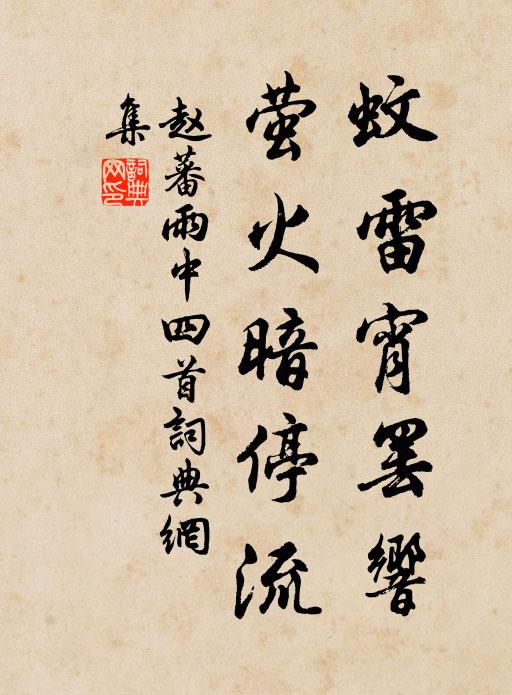 蚊雷宵罢響
萤火暗停流
赵蕃雨中四首詞典網
集
詞典网印